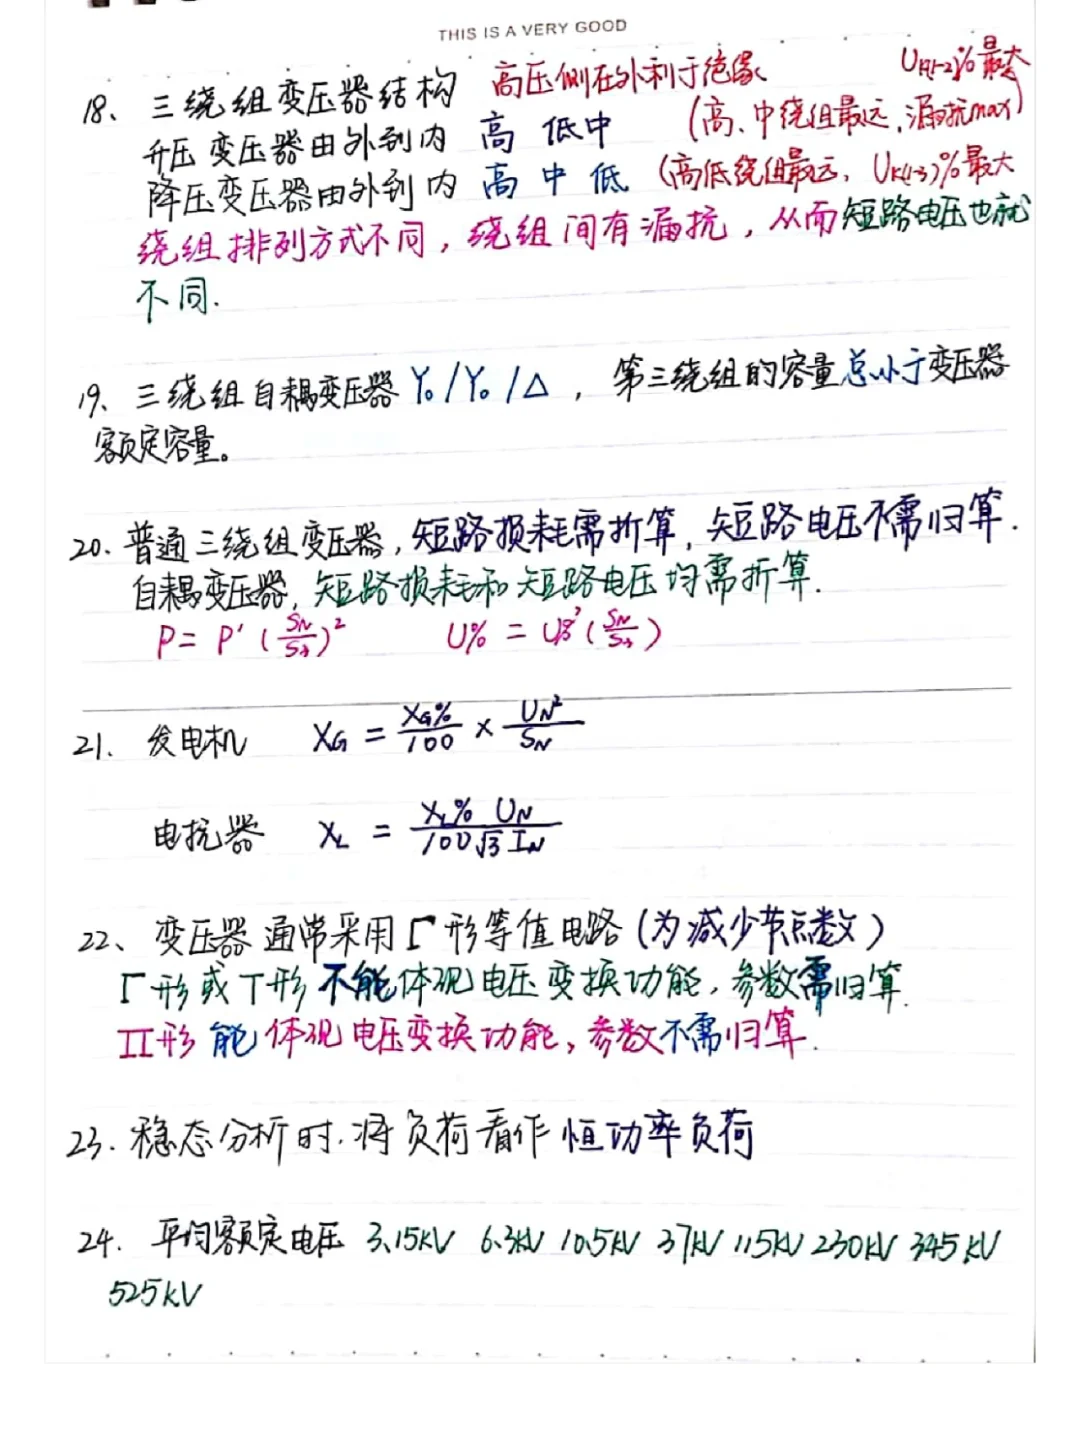 THIS IS A VERY GOOD
18、三绕组变压器结构 高压侧在外利于绝缘 UK(1-2)%最大
升压变压器由外到内 高 低中 (高、中绕组最远,漏抗max)
降压变压器由外到内 高 中 低 (高低绕组最远, UK(1-3)%最大
绕组排列方式不同,绕组间有漏抗,从而短路电压也就
不同.
19、三绕组自耦变压器 Y₀/Y₀/△,第三绕组的容量总小于变压器
额定容量。
20.普通三绕组变压器,短路损耗需折算,短路电压不需归算.
自耦变压器,短路损耗和短路电压均需折算.
P= P'( SN/S3 )² U% = ( SN/S3 )
21. 发电机 XG = XG%/100 × UN²/SN
电抗器 XL = XL% UN/100√3 IN
22、变压器通常采用Γ形等值电路(为减少节点数)
Γ形或T形不能体现电压变换功能,参数需归算.
Π形能体现电压变换功能,参数不需归算.
23.稳态分析时.将负荷看作恒功率负荷
24. 平均额定电压 3.15kV 6.3kV 10.5kV 37kV 115kV 230kV 345kV
525kV